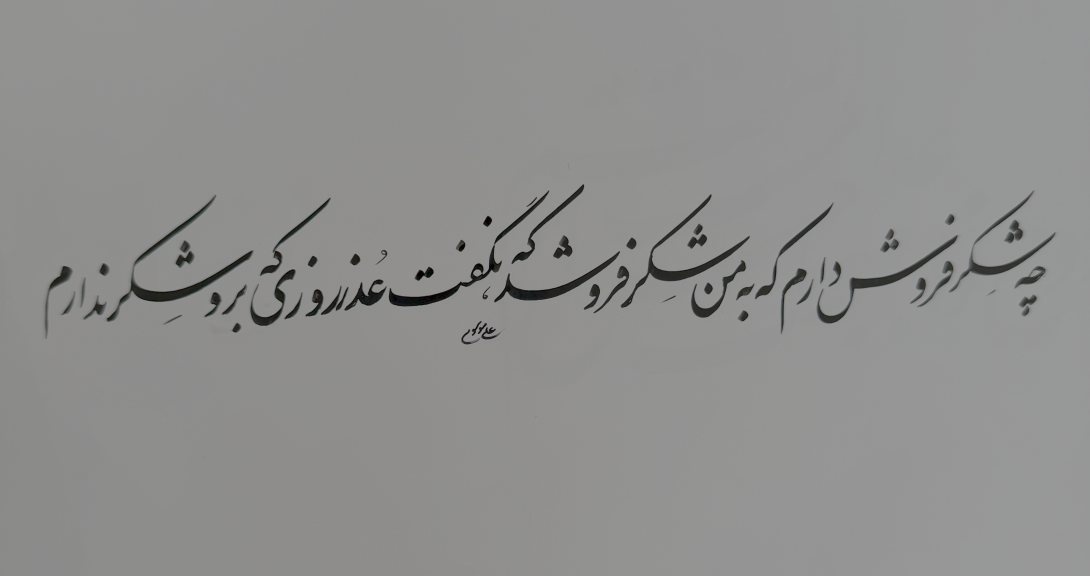 چه شکرفروش دارم که به من شکر فروشد که نگفت عُذر روزی که برو شکر ندارم